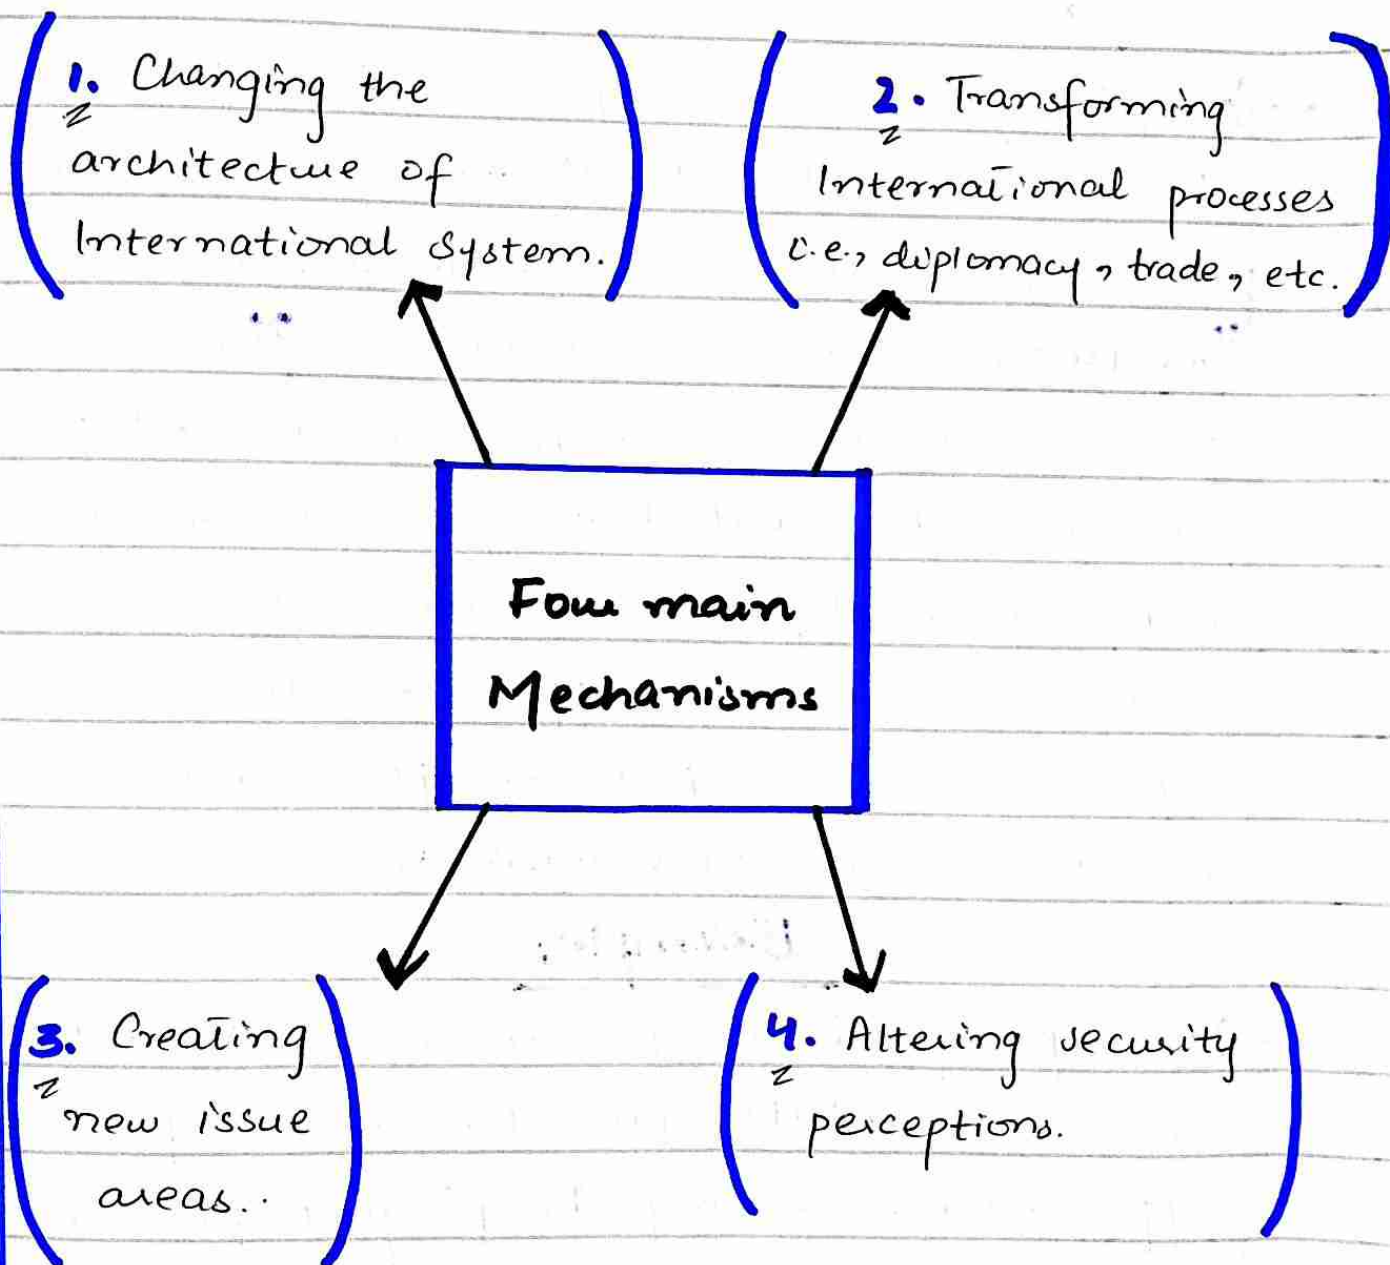 1. Changing the
architecture of
International system.
2. Transforming
International processes
i.e., diplomacy, trade, etc.
Four main
Mechanisms
3. Creating
new issue
areas.
4. Altering security
perceptions.